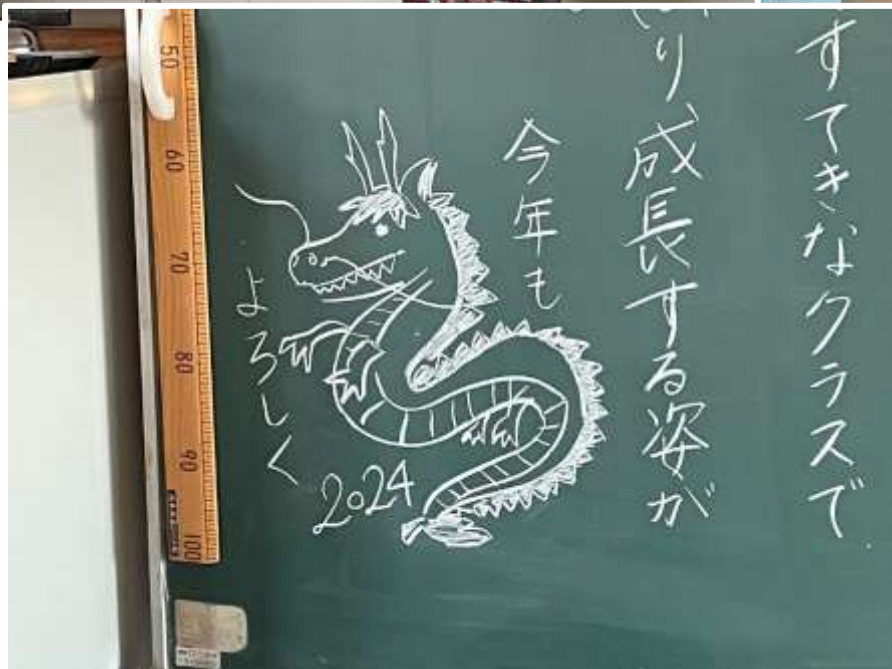 すてきなクラスで
り、成長する姿が
今年も
よろしく
2024
50
60
70
80
90
100